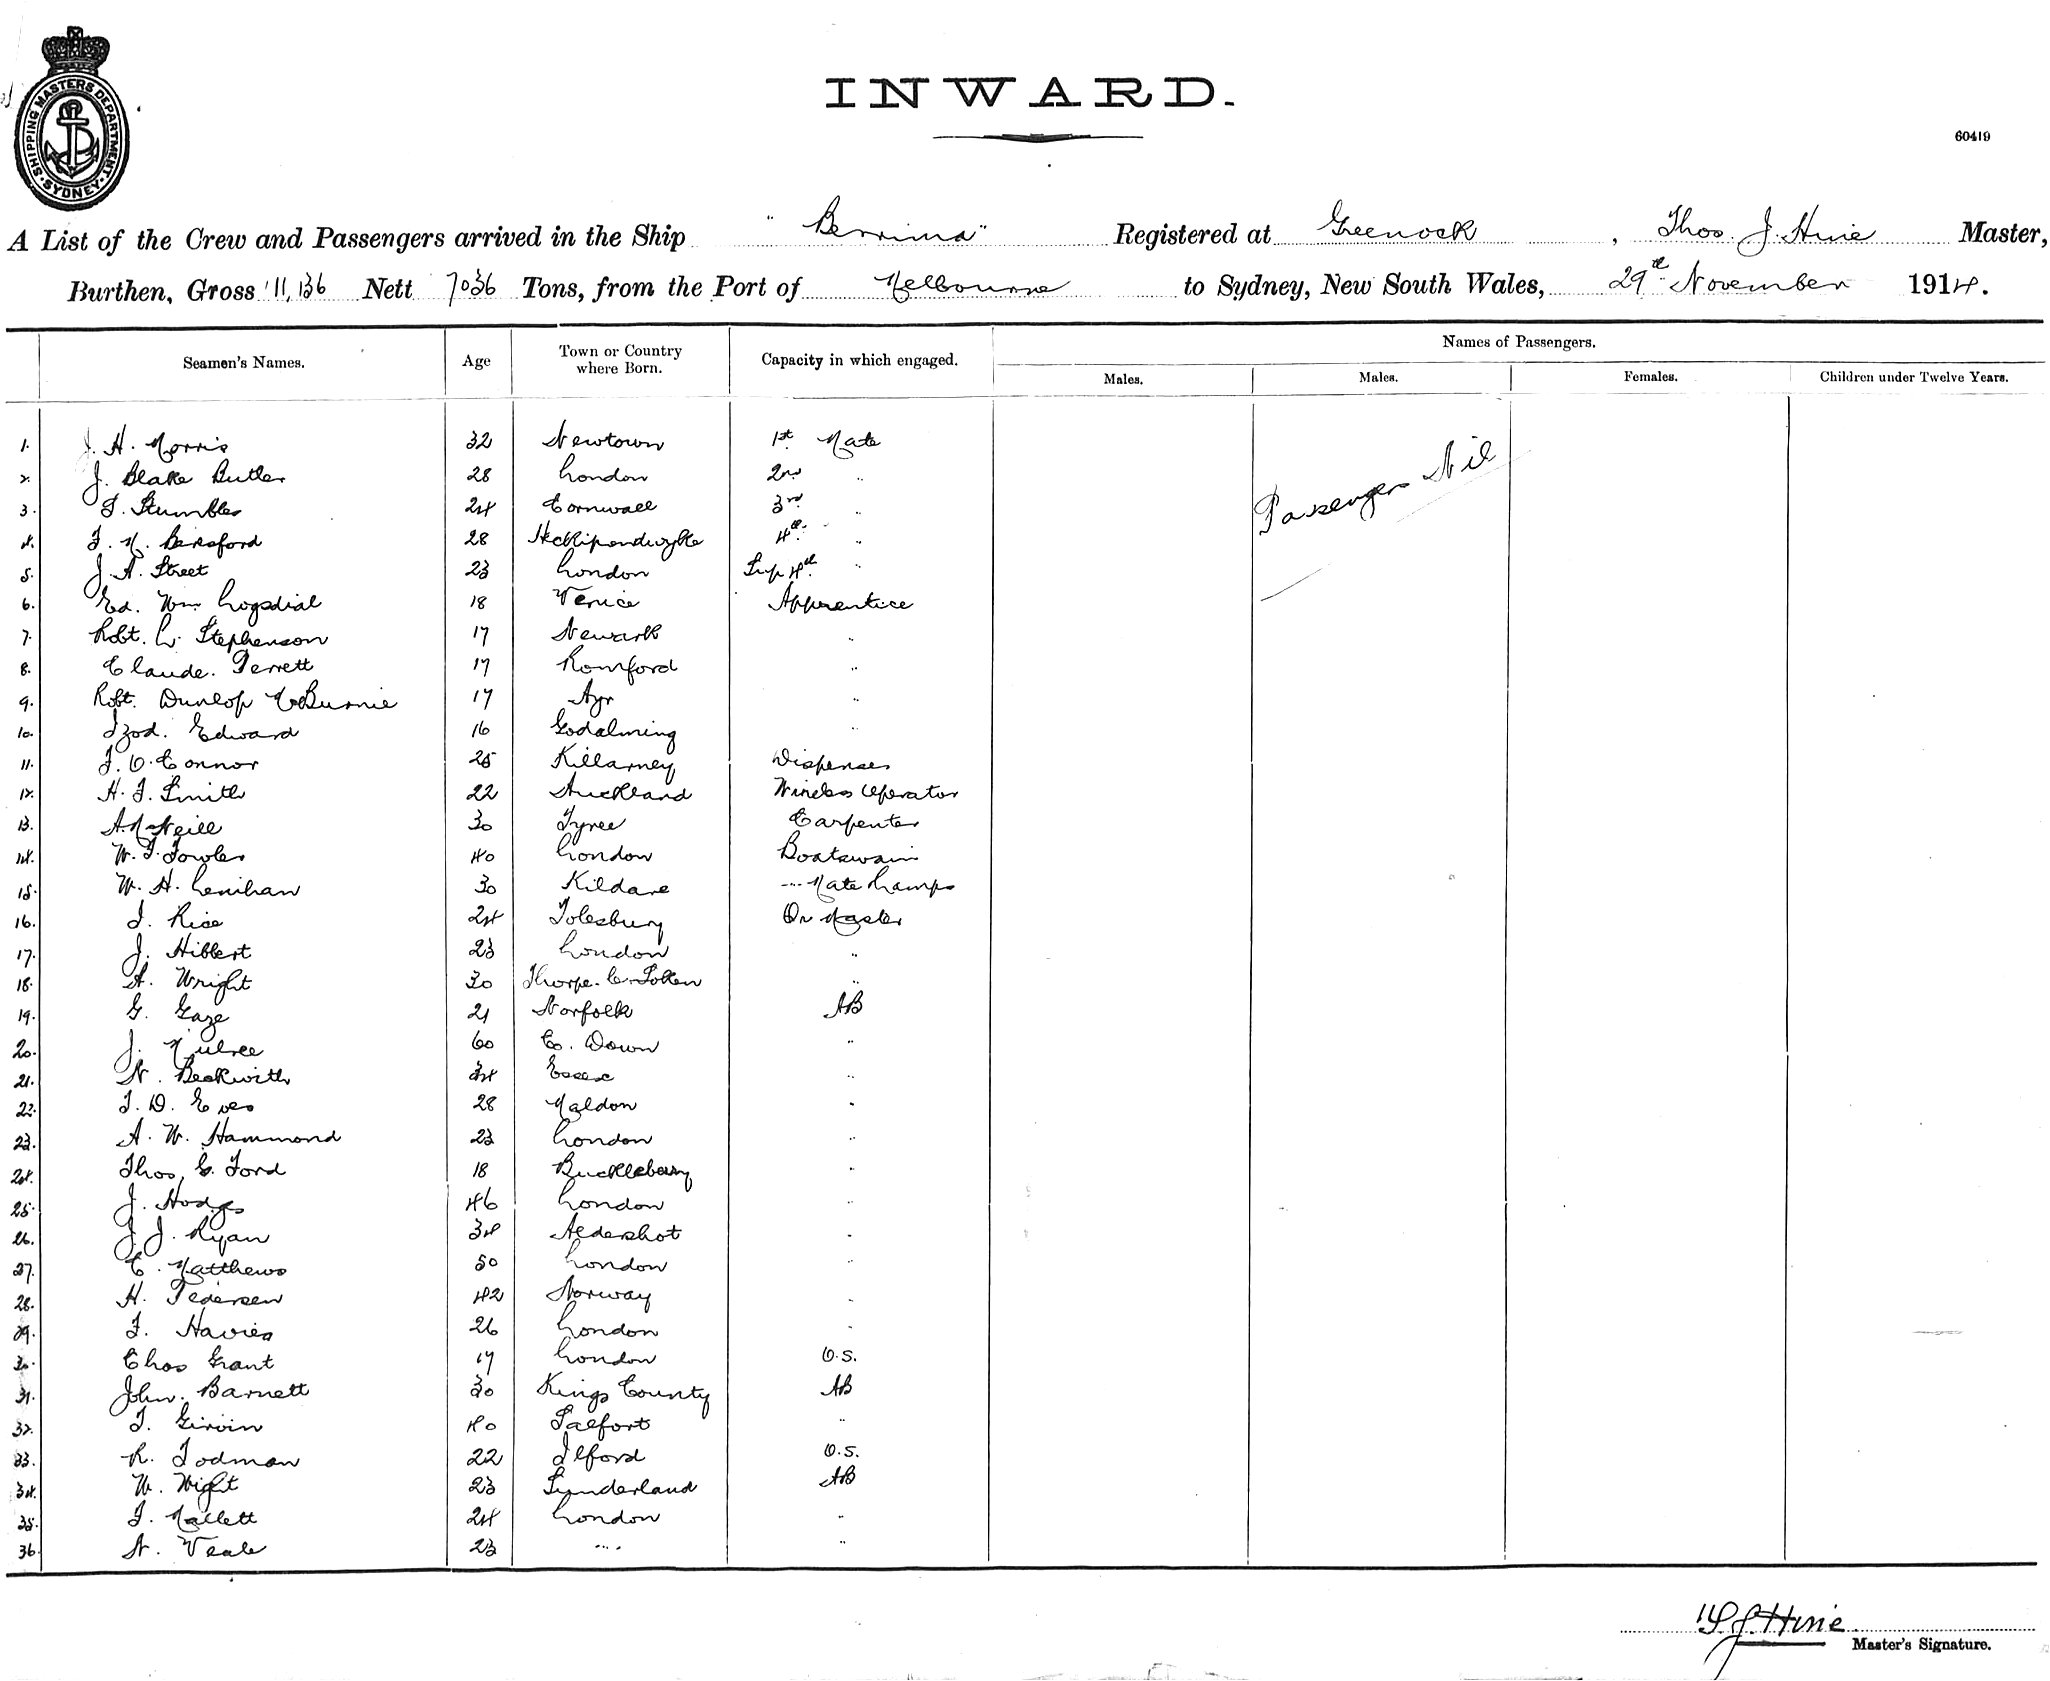 SHIPPING MASTERS DEPARTMENT
SYDNEY
INWARD.
60419
A List of the Crew and Passengers arrived in the Ship "Berrima" Registered at Greenock, Thos J. Hine Master,
Burthen, Gross 11,136 Nett 7036 Tons, from the Port of Melbourne to Sydney, New South Wales, 29th November 1914.
Names of Passengers.
Seamen's Names. Age Town or Country where Born. Capacity in which engaged. Males. Males. Females. Children under Twelve Years.
Passengers Nil
1. J. H. Morris 32 Newtown 1st Mate
2. J. Blake Butler 28 London 2nd "
3. F. Stumbles 24 Cornwall 3rd "
4. F. M. Beresford 28 Heckipondwyke 4th "
5. J. A. Street 23 London Sup 4th "
6. Ed. Wm Logsdial 18 Venice Apprentice
7. Robt. L. Stephenson 17 Newark "
8. Claude. Perrett 17 Romford "
9. Robt. Dunlop McBurnie 17 Ayr "
10. Izod. Edward 16 Godalming "
11. J. O'Connor 25 Killarney Dispenser
12. H. J. Smith 22 Auckland Wireless Operator
13. A. McNeill 30 Tyree Carpenter
14. W. J. Fowler 40 London Boatswain
15. W. H. Lenihan 30 Kildare " Mate Lamps
16. J. Rice 24 Tolesbury Qr Master
17. J. Hibbert 23 London "
18. A. Wright 30 Thorpe-le-Soken "
19. G. Gaze 21 Norfolk AB
20. J. Mulree 60 Co. Down "
21. N. Beckwith 34 Essex "
22. J. D. Eves 28 Maldon "
23. A. W. Hammond 23 London "
24. Thos. G. Ford 18 Bucklebury "
25. J. Hodgs 46 London "
26. J. J. Ryan 34 Aldershot "
27. C. Matthews 50 London "
28. H. Pedersen 42 Norway "
29. F. Havies 26 London "
30. Chas Grant 19 London O.S.
31. John. Barnett 30 Kings County AB
32. J. Girvin 40 Salfort "
33. R. Todman 22 Ilford O.S.
34. W. Wight 23 Sunderland AB
35. J. Mallett 24 London "
36. N. Veale 23 " "
T. J. Hine
Master's Signature.